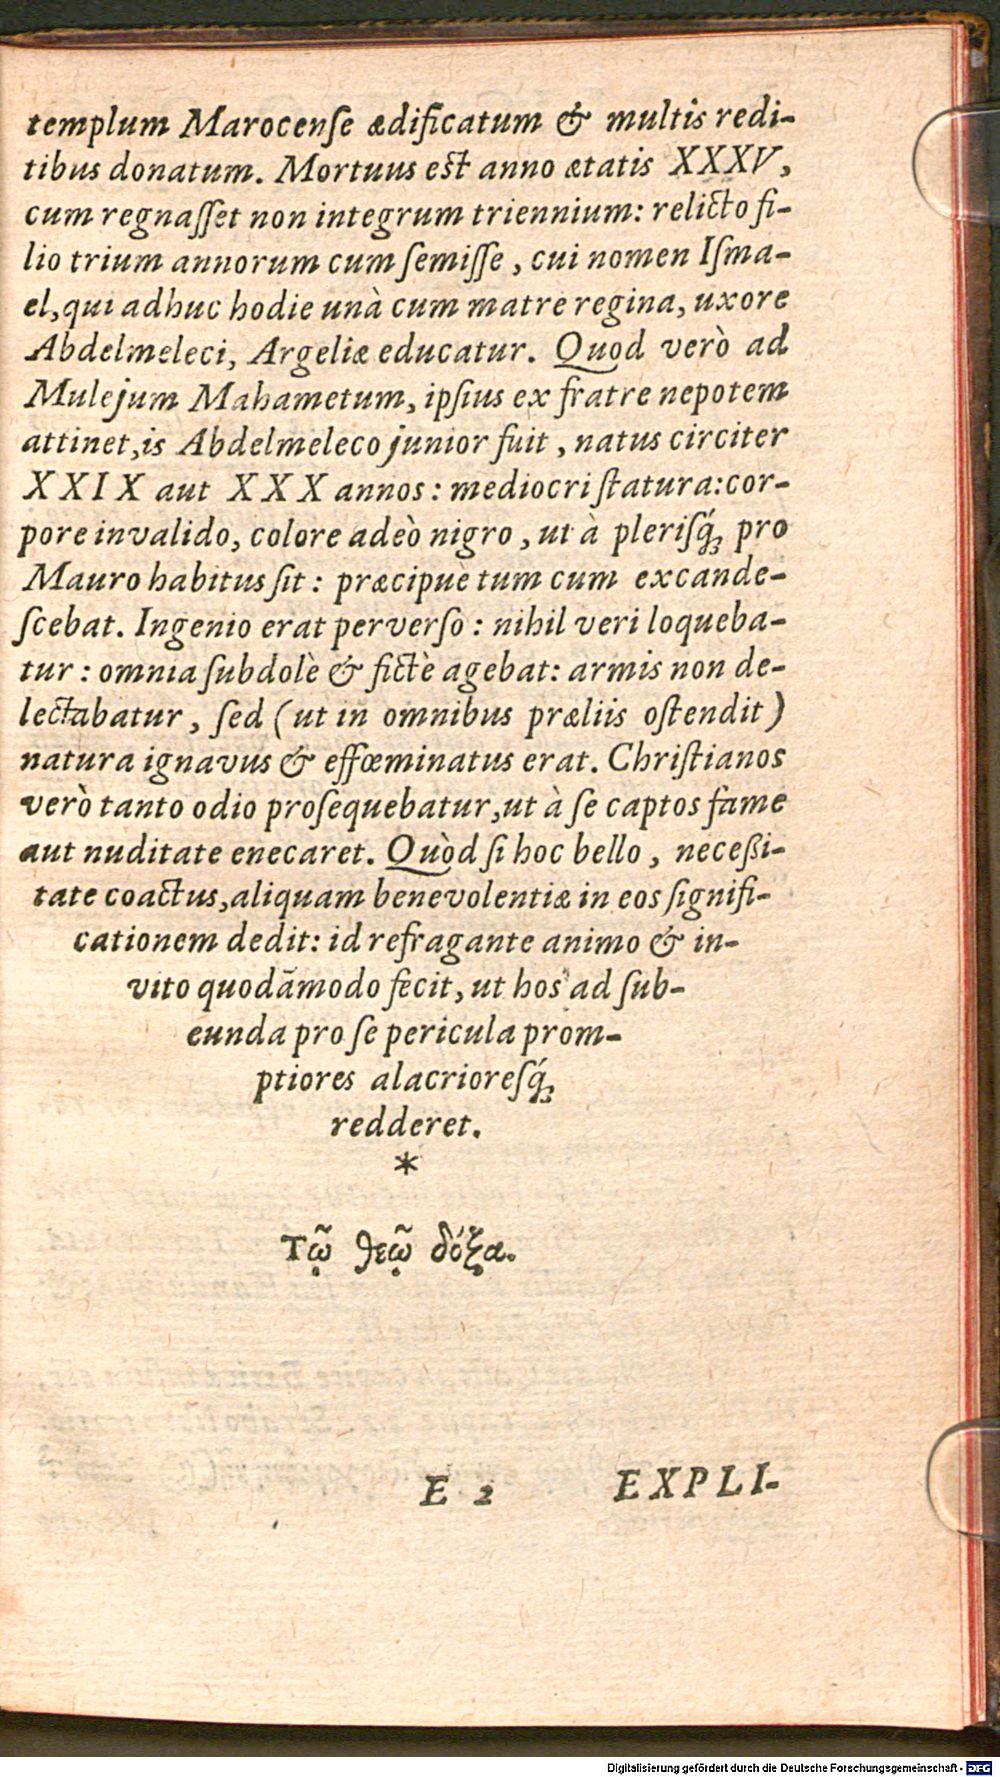 templum Marocenſe ædificatum & multis redi-
tibus donatum. Mortuus est anno ætatis XXXV,
cum regnaſſet non integrum triennium: relicto fi-
lio trium annorum cum ſemiſſe, cui nomen Iſma-
el, qui adhuc hodie unà cum matre regina, uxore
Abdelmeleci, Argeliæ educatur. Quod verò ad
Mulejum Mahametum, ipſius ex fratre nepotem
attinet, is Abdelmeleco junior fuit, natus circiter
XXIX aut XXX annos: mediocri ſtatura: cor-
pore invalido, colore adeò nigro, ut à pleriſq́; pro
Mauro habitus ſit: præcipuè tum cum excande-
ſcebat. Ingenio erat perverſo: nihil veri loqueba-
tur: omnia ſubdolè & fictè agebat: armis non de-
lectabatur, ſed (ut in omnibus præliis oſtendit)
natura ignavus & effœminatus erat. Chriſtianos
verò tanto odio proſequebatur, ut à ſe captos fame
aut nuditate enecaret. Quòd ſi hoc bello, neceßi-
tate coactus, aliquam benevolentiæ in eos ſignifi-
cationem dedit: id refragante animo & in-
vito quodãmodo fecit, ut hos ad ſub-
eunda pro ſe pericula prom-
ptiores alacrioreſq́;
redderet.
*
Τῷ θεῷ δόξα.
E 2 EXPLI-
Digitalisierung gefördert durch die Deutsche Forschungsgemeinschaft - DFG